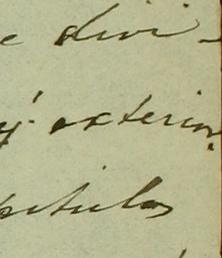 e divi-
y exterior
pitulos